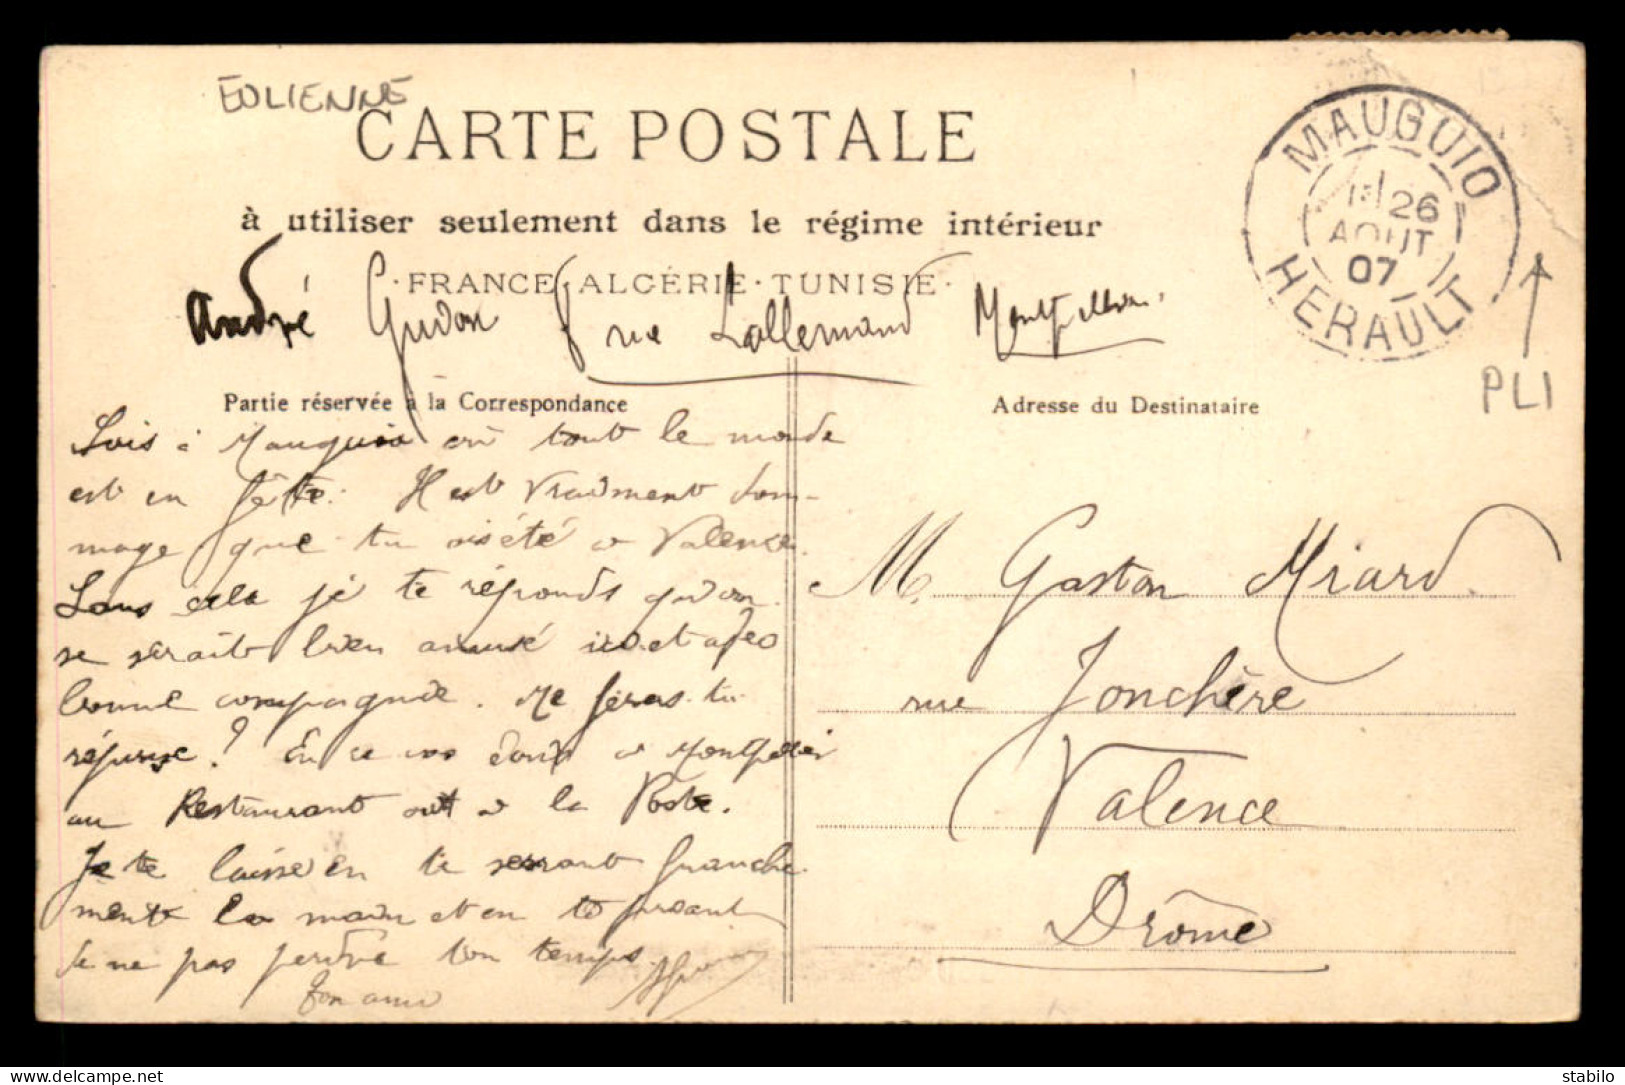 ÉOLIENNE
CARTE POSTALE
à utiliser seulement dans le régime intérieur
· FRANCE · ALGÉRIE · TUNISIE ·
André Guidon 8 rue Lallemand Montpellier
MAUGUIO
26
AOUT
07
HERAULT
PLI
Partie réservée à la Correspondance
Adresse du Destinataire
Suis à Mauguio où tout le monde
est en fête. Il est vraiment dom-
mage que tu ais été à Valence.
Sans cela je te réponds qu'on
se serait bien amusé ici et avec
bonne compagnie. Me feras-tu
réponse ? En ce cas écris à Montpellier
au Restaurant out à la Poste.
Je te laisse en te serrant franche
mente la main et en te
de ne pas perdre ton temps.
Ton ami
M. Gaston Miard
rue Jonchère
Valence
Drôme
stabilo